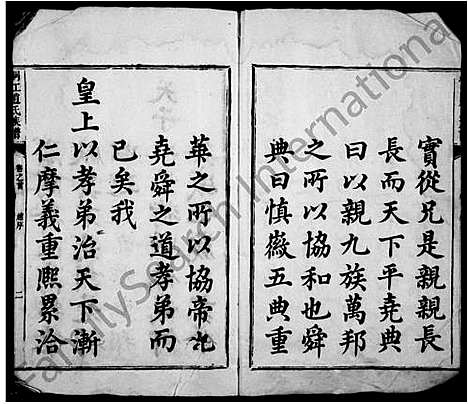 實從兄是親親長
長而天下平堯典
曰以親九族萬邦
之所以協和也舜
典曰慎徽五典重
華之所以協帝也
堯舜之道孝弟而
已矣我
皇上以孝弟治天下漸
仁摩義重熙累洽
江趙氏族譜
卷之首
總序
二
FamilySearch International